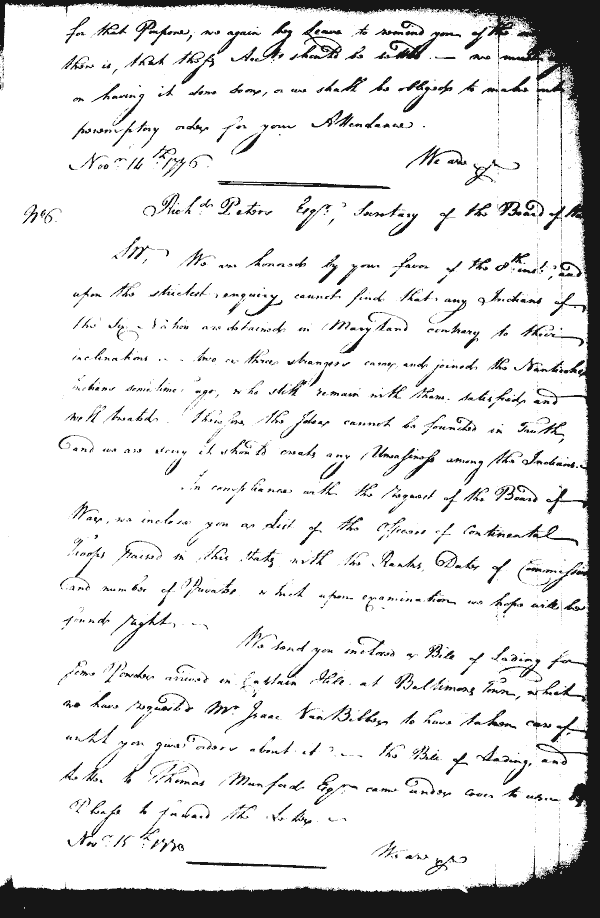 for that Purpose, we again beg Leave to remind you of the
there is, that these Accts should be settled — we must
on having it done soon, or we shall be obliged to make out
peremptory order for your Attendance.
Novr. 14th 1776. We are &c
No 6. Richd. Peters Esqr., Secretary of the Board of War
Sir, We are honored by your favor of the 8th inst., and
upon the strictest enquiry cannot find that any Indians of
the Six Nation are detained in Maryland contrary to their
inclinations — two or three strangers came and joined the Nanticoke
Indians sometime ago, who still remain with them satisfied and
well treated. Therefore the Idea cannot be founded in Truth,
and we are sorry it should create any Uneasiness among the Indians.
In compliance with the request of the Board of
War, we inclose you a List of the Officers of Continental
Troops raised in this State, with the Ranks, Dates of Commissions
and number of Privates, which upon examination we hope will be
found right. —
We send you inclosed a Bill of Lading for
some Powder arrived in Captain at Baltimore Town, which
we have requested Mr. Isaac VanBibber to have taken care of,
until you give orders about it — the Bill of Lading and
Letter to Thomas Mumford Esqr. came under cover to us
Please to forward the Letter. —
Novr. 15th 1776 We are &c